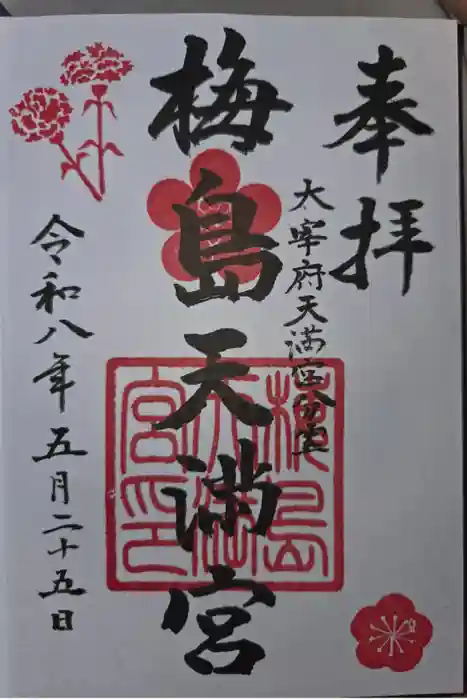 奉拝
太宰府天満宮分霊
梅島天満宮
梅島天満宮印
令和八年五月二十五日